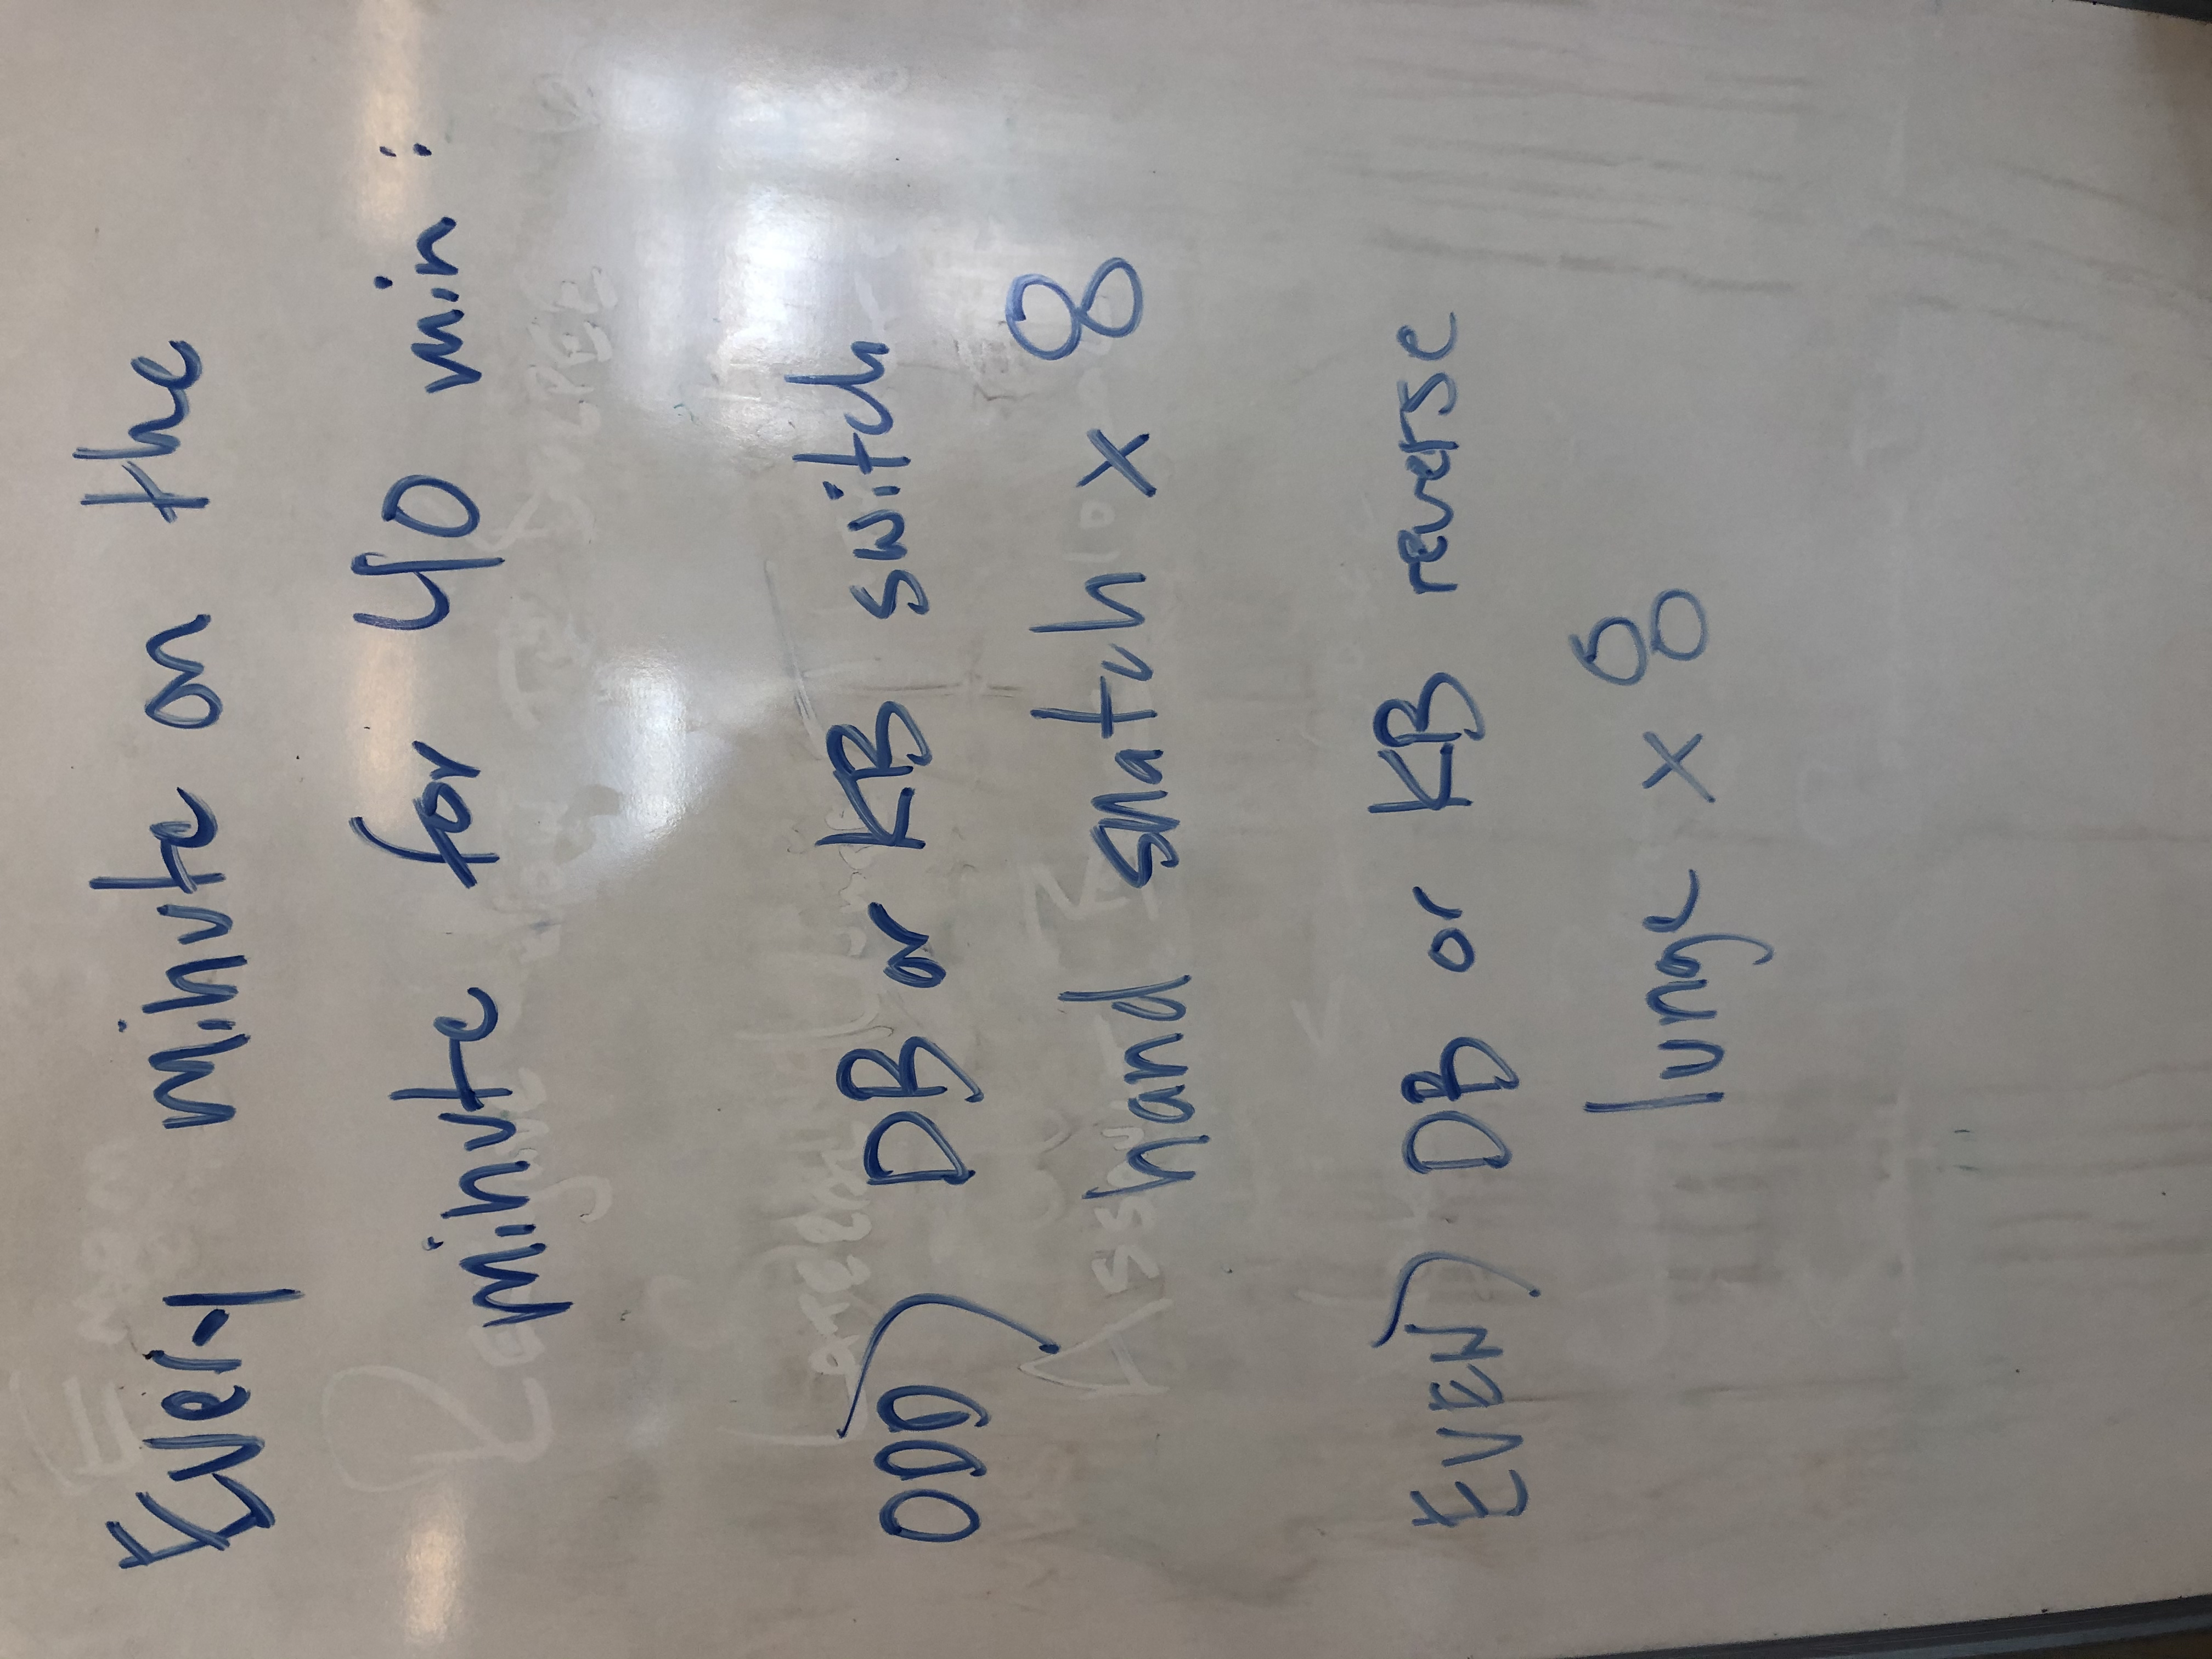 Every minute on the
minute for 40 min:
ODD) DB or KB switch
hand snatch x 8
EVEN) DB or KB reverse
lunge x 8